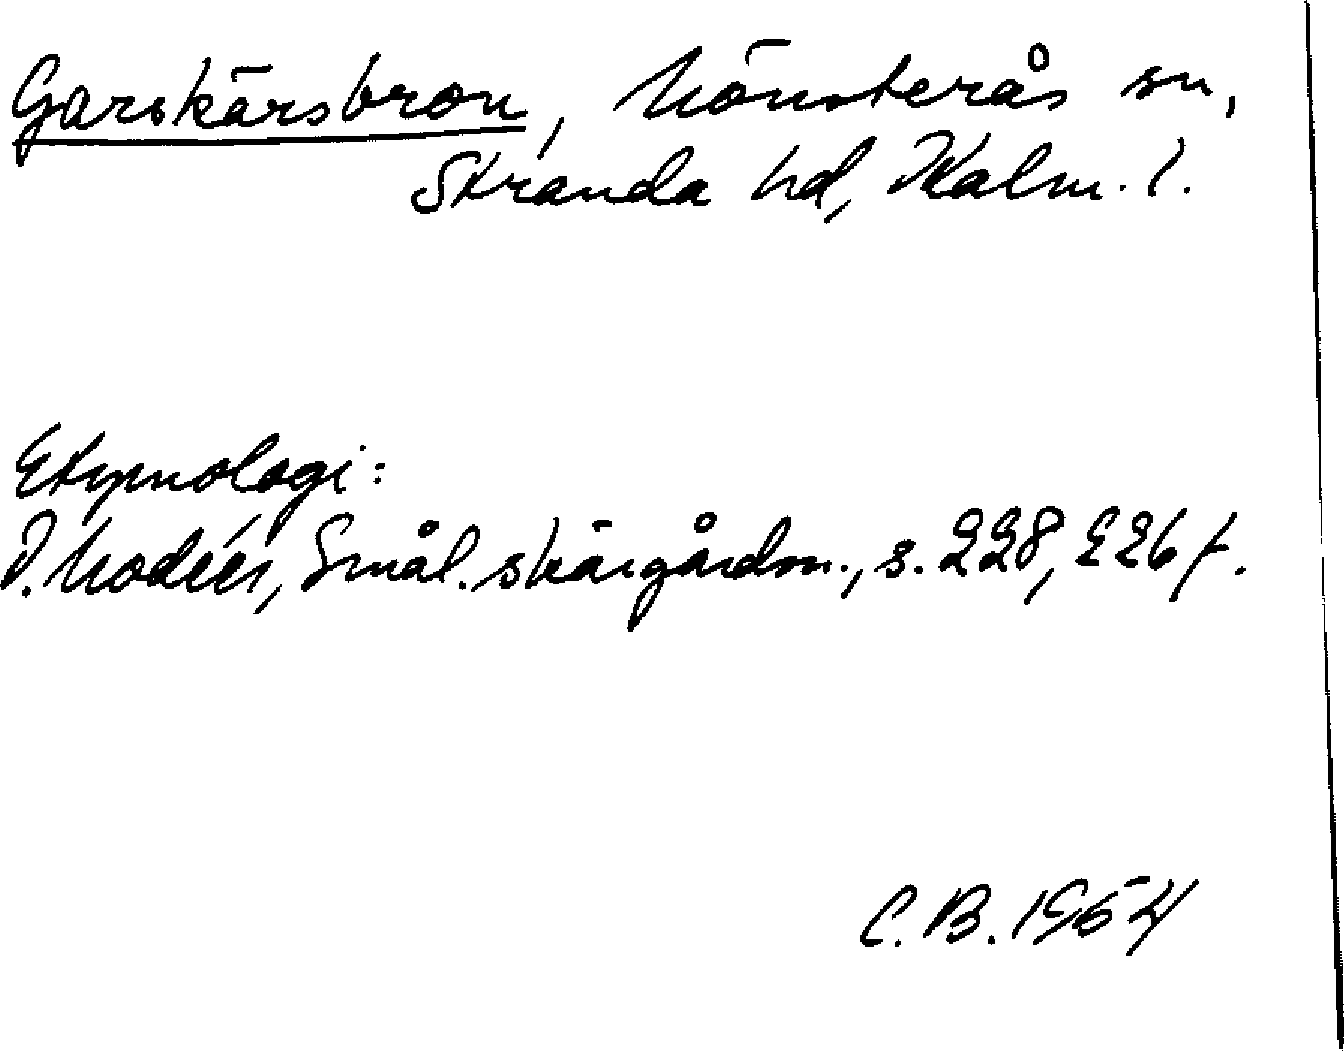 Garskärsbron, Mönsterås sn,
Stranda hd, Kalm. l.
Etymologi:
I. Modéer, Smål. skärgårdsn., s. 228, 226 f.
C. B. 1954